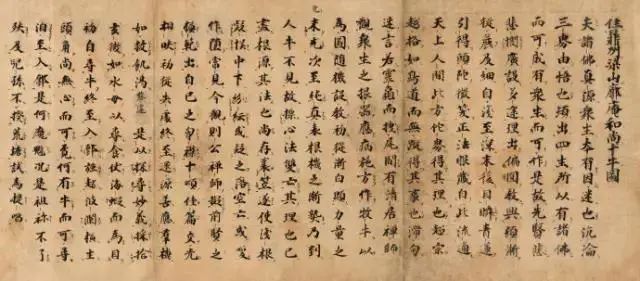 住鼎州梁山廓庵和尚十牛圖
夫諸佛真源衆生本有因迷也沉淪
三界因悟也頓出四生所以有諸佛
而可成有衆生而可作是故先賢
悲憫廣設多途理出偏圓教興頓漸
從麁及細自淺至深末後目瞬青蓮
引得頭陀微笑正法眼藏自此流通
天上人間此方他界得其理也超宗
越格如鳥道而無蹤得其事也滯句
迷言若靈龜而曳尾間有清居禪師
觀衆生之根器應病施方作牧牛以
為圖隨機設教初從漸白顯力量之
未充次至純真表根機之漸乃到
人牛不見故標心法雙亡其理也已
盡根源其法也尚存莎笠遂使淺根
疑悞中下紛紜或疑之落空亡也或喚
作墮常見今觀則公禪師擬前賢之
模範出自己之胸襟十頌佳篇交光
相映初從失處終至還源善應羣機
如救飢渴慈遠是以探尋妙義採拾
玄微如水母以尋飡依海蝦而為目
初自尋牛終至入鄽強起波瀾橫生
頭角尚無心而可覓何有牛而可尋
洎至入鄽是何魔魅況是祖禰不了
殃及兒孫不揆荒唐試為提唱